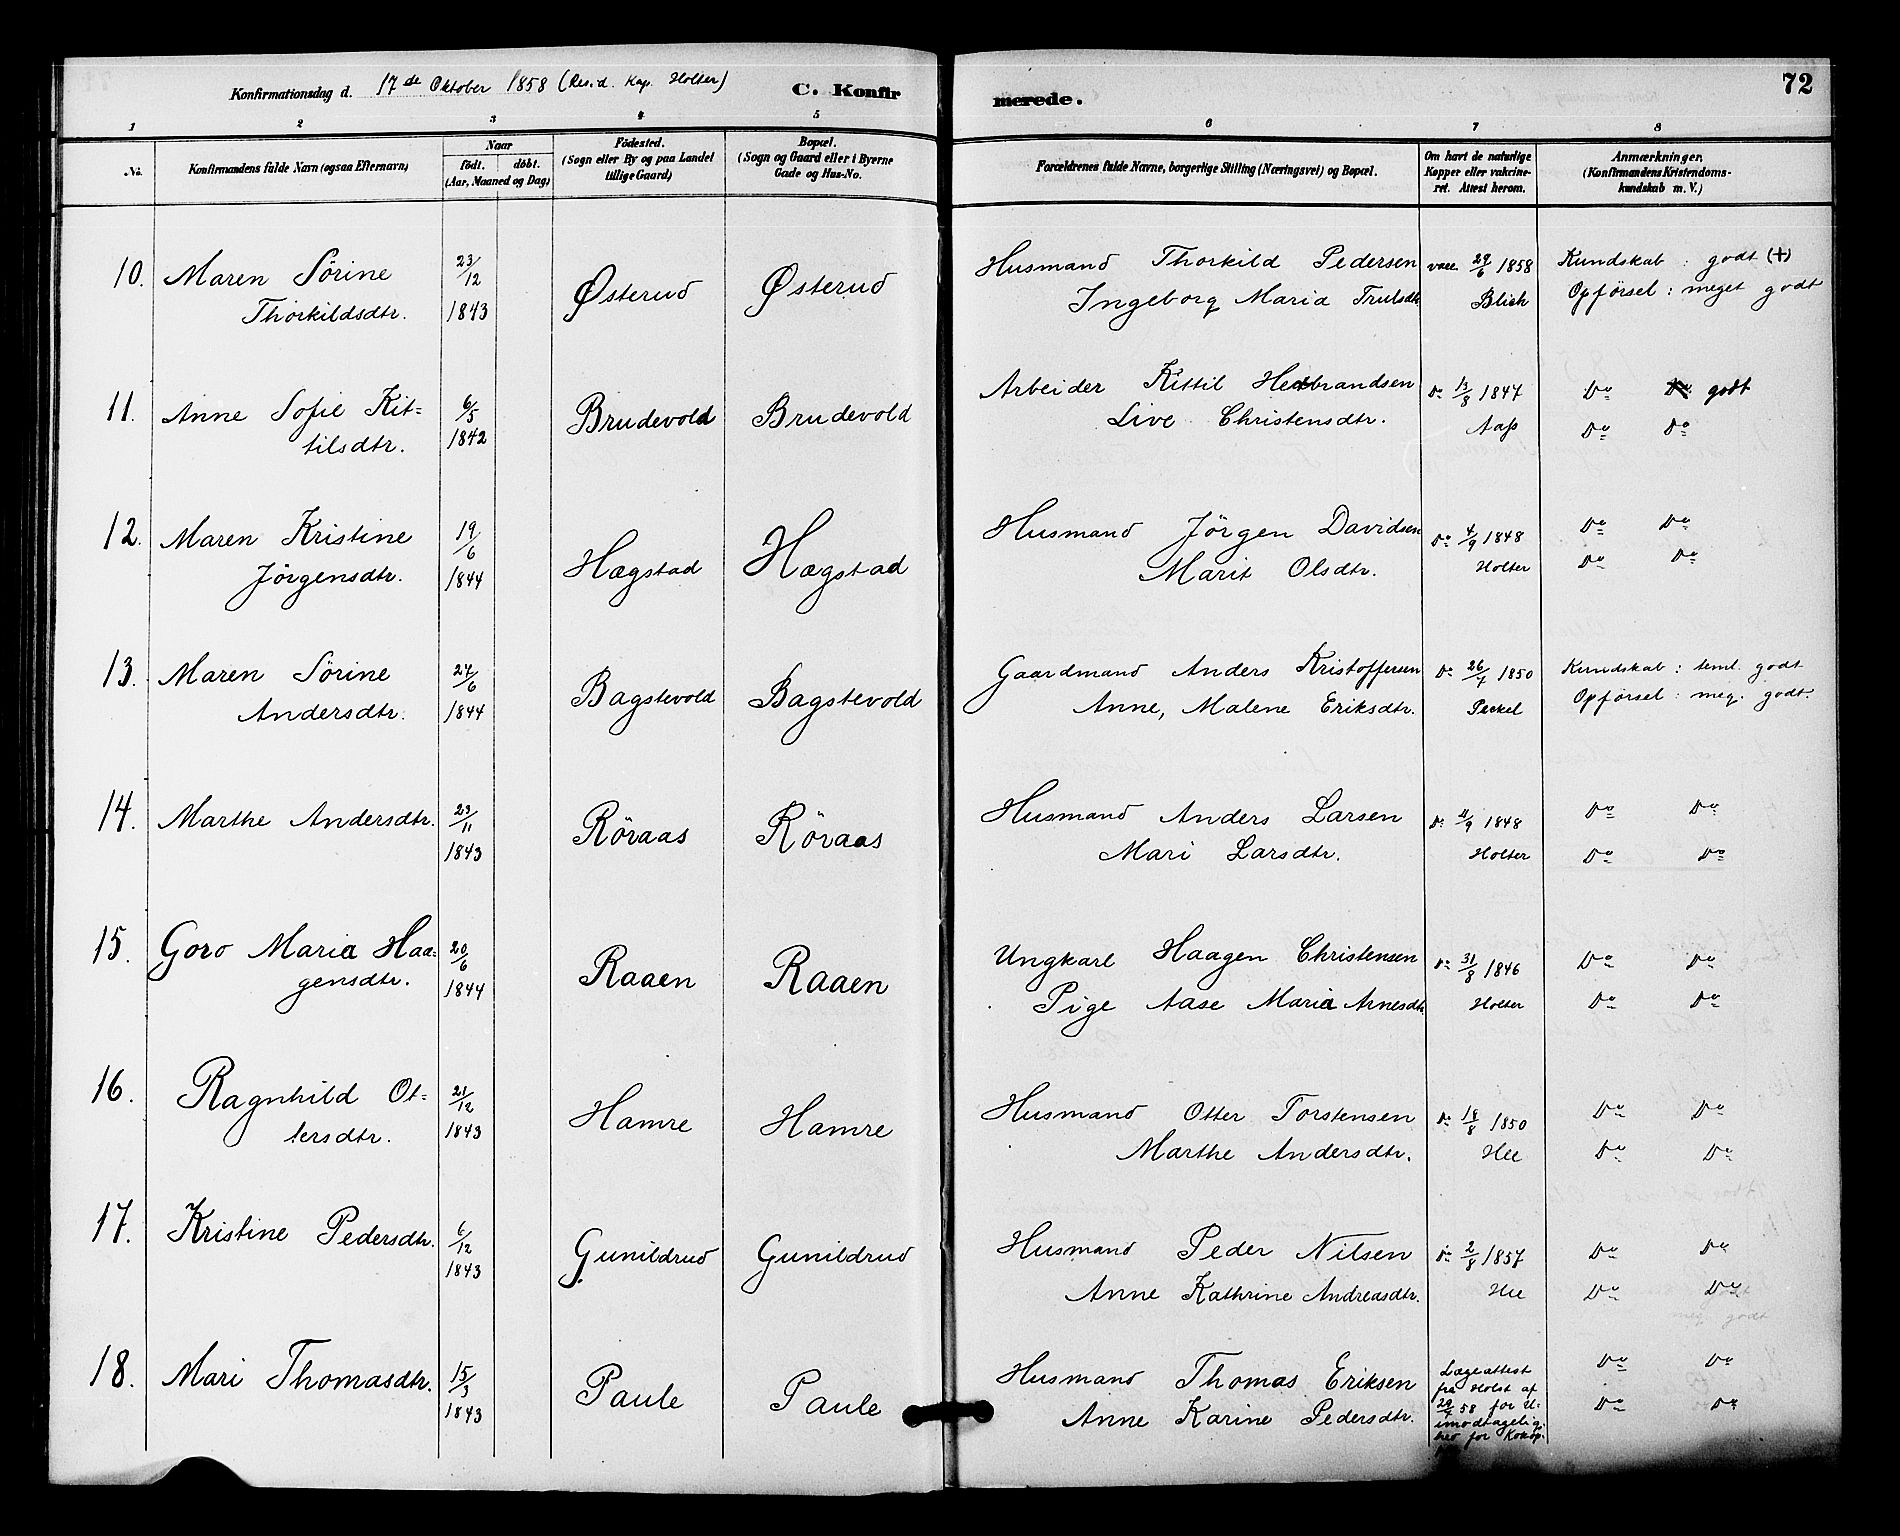 72
Konfirmationsdag d. 17de Oktober 1858 (Resid. Kap. Holter) C. Konfirmerede.
1 2 3 4 5 6 7 8
No. Konfirmandens fulde Navn (ogsaa Efternavn) Naar födt. döbt. (Aar, Maaned og Dag) Födested. (Sogn eller By og paa Landet tillige Gaard) Bopæl. (Sogn og Gaard eller i Byerne Gade og Hus-No. Forældrenes fulde Navne, borgerlige Stilling (Næringsvei) og Bopæl. Om havt de naturlige Kopper eller vakcineret. Attest herom. Anmærkninger. (Konfirmandens Kristendomskundskab m. V.)
10. Maren Sörine 23/12 Østerud Østerud Husmand Thorkild Pedersen vacc 29/6 1858 Kundskab : godt (+)
Thorkildsdtr. 1843 Ingeborg Maria Trulsdtr Blich Opförsel : meget godt
11. Anne Sofie Kit= 6/5 Brudevold Brudevold Arbeider Kittil Helbrandsen Do 13/8 1847 Do godt
tilsdtr. 1842 Live Christensdtr. Aass Do Do
12. Maren Kristine 19/6 Hægstad Hægstad Husmand Jörgen Davidsen Do 4/9 1848 Do Do
Jörgensdtr. 1844 Marit Olsdtr. Holter Do Do
13. Maren Sörine 24/6 Bagstevold Bagstevold Gaardmand Anders Kristoffersen Do 26/7 1850 Kundskab : teml. godt
Andersdtr. 1844 Anne, Malene Eriksdtr. Peckel Opförsel : meg. godt.
14. Marthe Andersdtr. 23/11 Röraas Röraas Husmand Anders Larsen Do 11/9 1848 Do Do
1843 Mari Larsdtr. Holter Do Do
15. Goro Maria Haa= 20/6 Raaen Raaen Ungkarl Haagen Christensen Do 31/8 1846 Do Do
gensdtr. 1844 Pige Aase Maria Arnesdtr Holter Do Do
16. Ragnhild Ot= 21/12 Hamre Hamre Husmand Otter Torstensen Do 18/8 1850 Do Do
tersdtr. 1843 Marthe Andersdtr. Hee Do Do
17. Kristine Pedersdtr. 6/12 Gunildrud Gunildrud Husmand Peder Nilsen Do 2/8 1857 Do Do
1843 Anne Kathrine Andreasdtr. Hee Do Do
18. Mari Thomasdtr. 15/3 Paule Paule Husmand Thomas Eriksen Lægeattest Do Do
1843 Anne Karine Pedersdtr. fra Holst af Do Do
58 for U=
imodtagelig=
hed for Kokop=